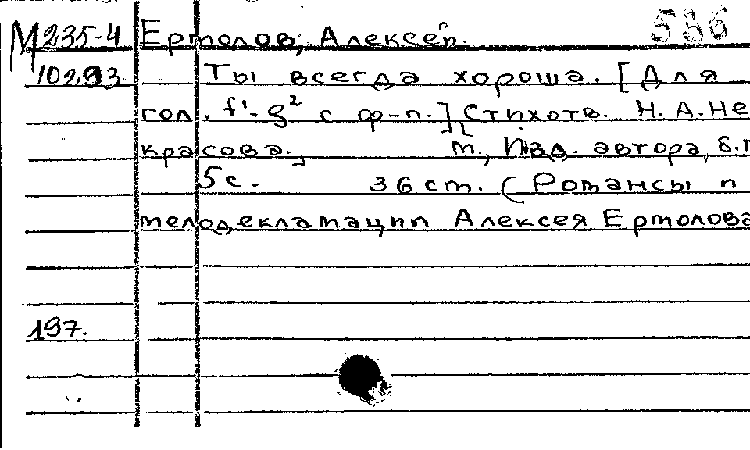 М 235-4 Ермолов, Алексей. 536
102.93 Ты всегда хороша. [Для
гол. f¹-g² с ф-п.] Стихотв. Н. А. Не
красова. М., Изд. автора, б.г
5с. 36 см. (Романсы и
мелодекламации Алексея Ермолова
197.